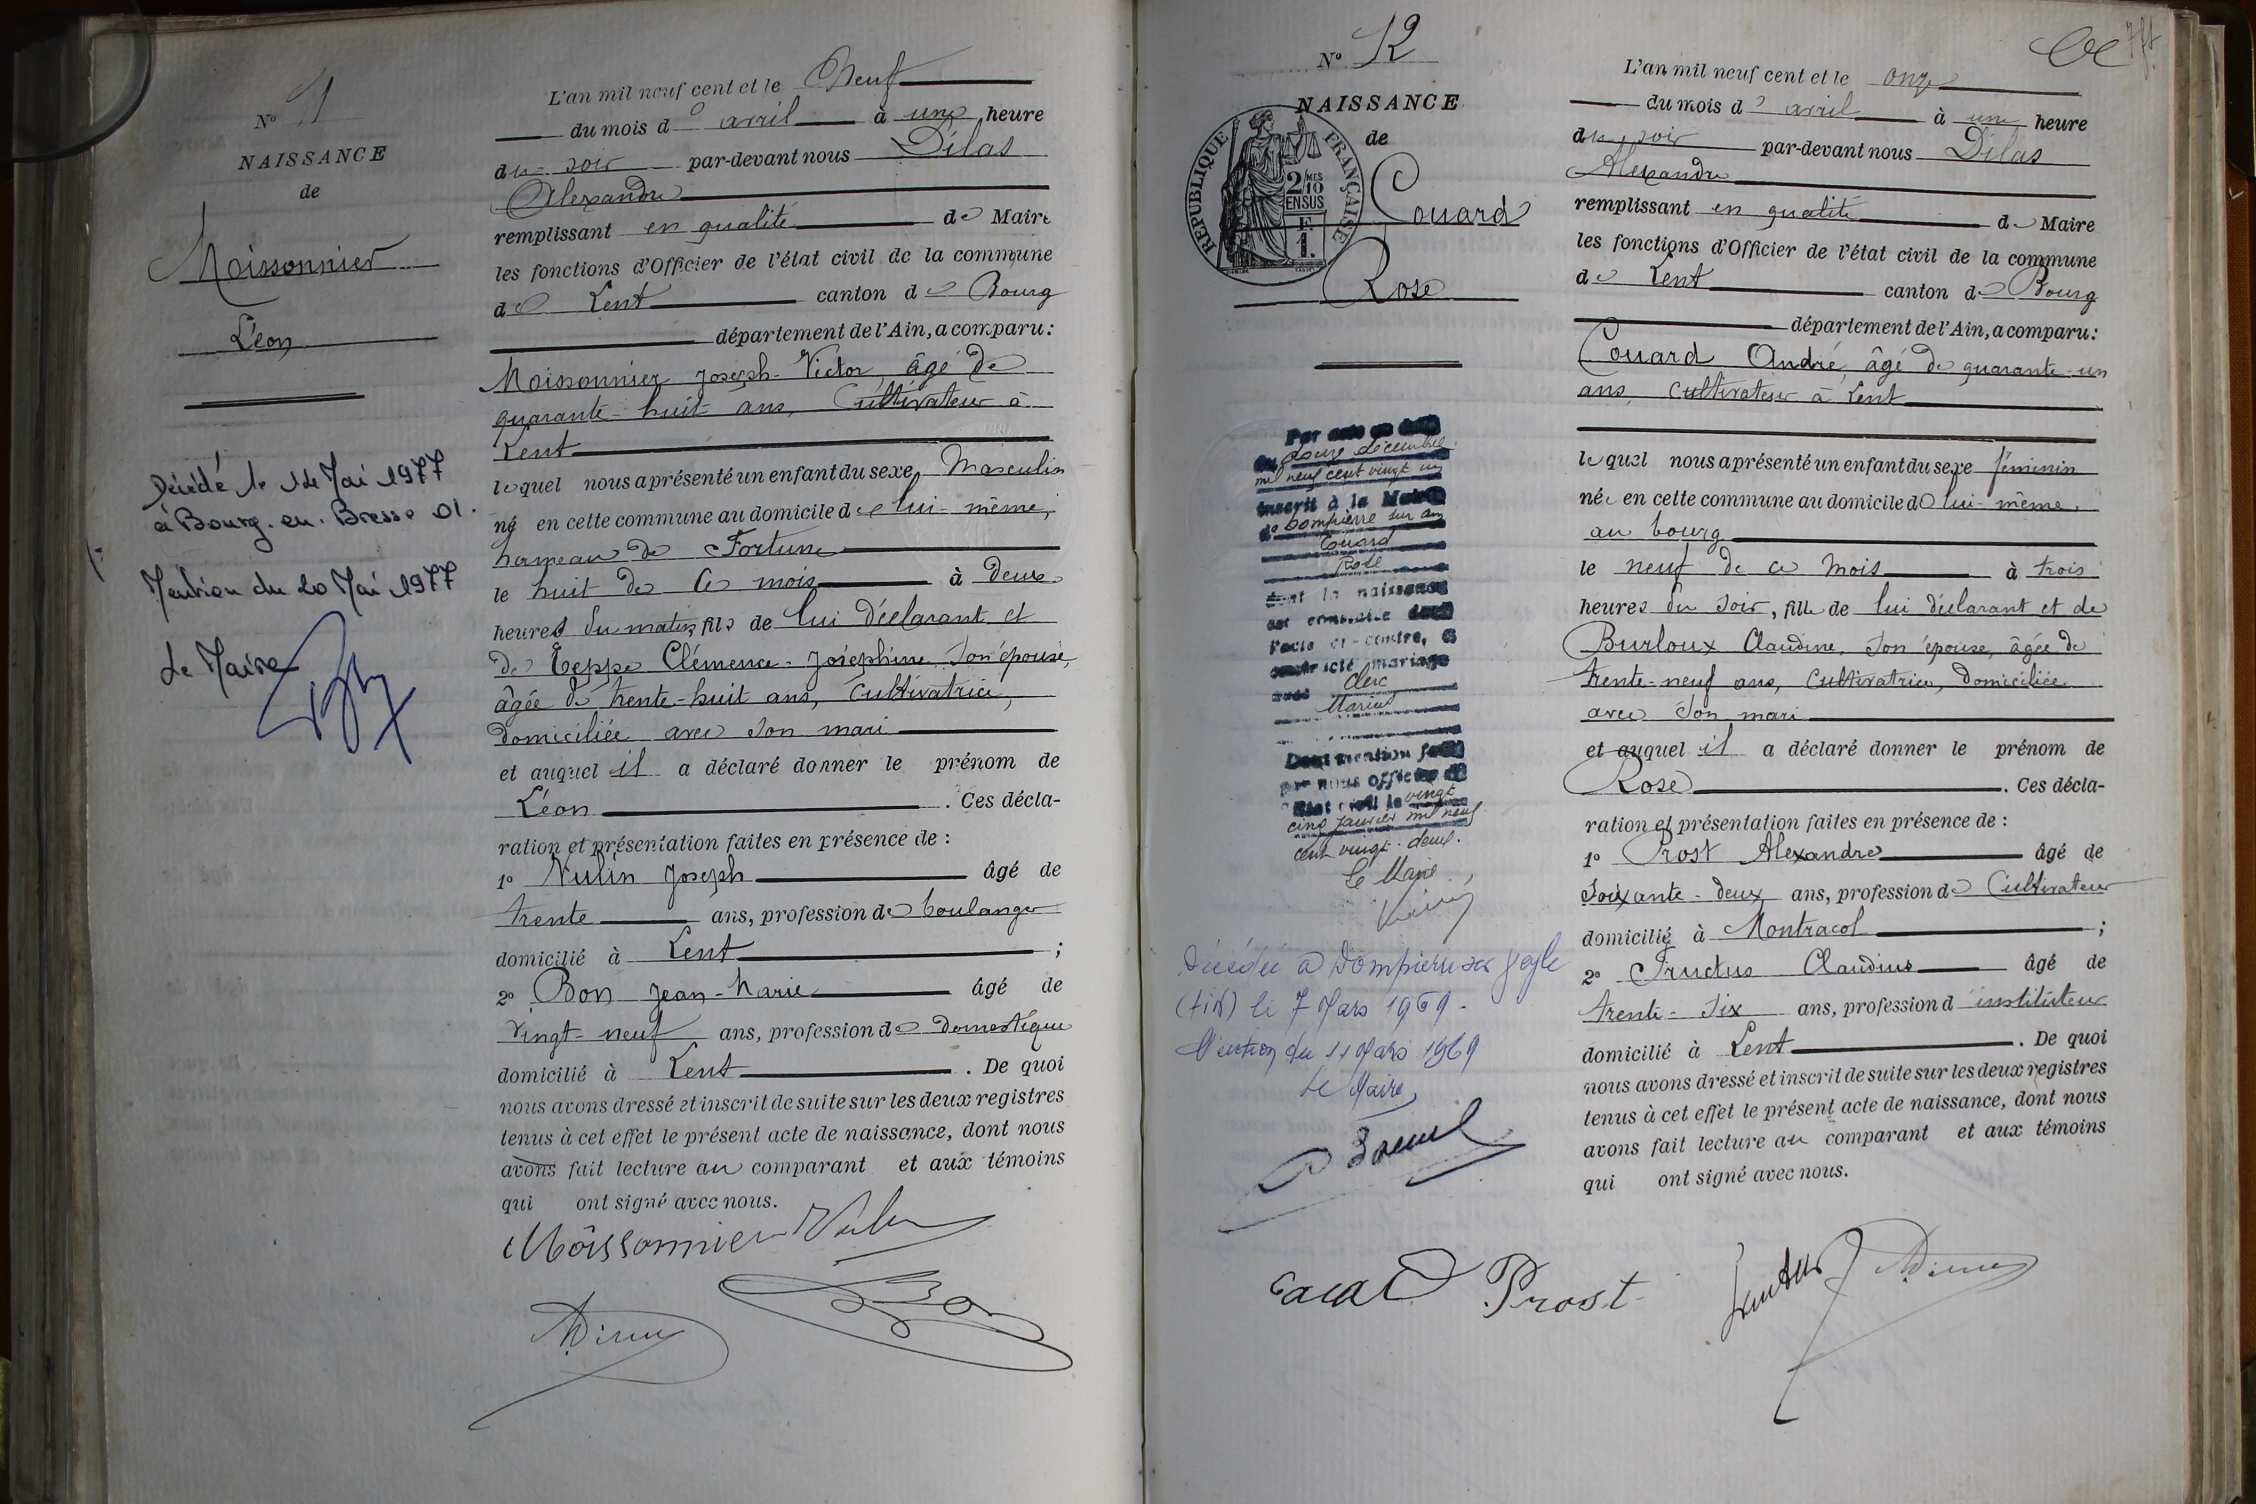 Nº 1
NAISSANCE
de
Moissonnier
Léon
Décédé le 14 Mai 1977
à Bourg. en. Bresse 01.
Mention du 20 Mai 1977
Le Maire
L'an mil neuf cent et le Neuf
du mois d'avril à une heure
du soir par-devant nous Dilas
Alexandre
remplissant en qualité de Maire
les fonctions d'Officier de l'état civil de la commune
de Lent canton de Bourg
département de l'Ain, a comparu:
Moissonnier Joseph-Victor, âgé de
quarante-huit ans, Cultivateur à
Lent
lequel nous a présenté un enfant du sexe Masculin
né en cette commune au domicile de lui-même,
hameau de Fortune
le huit de ce mois à deux
heures du matin, fils de lui déclarant et
de Teppe Clémence-Joséphine, son épouse,
âgée de trente-huit ans, Cultivatrice,
domiciliée avec son mari
et auquel il a déclaré donner le prénom de
Léon. Ces décla-
ration et présentation faites en présence de :
1º Vulin Joseph âgé de
trente ans, profession de boulanger
domicilié à Lent ;
2º Bon Jean-Marie âgé de
vingt-neuf ans, profession de domestique
domicilié à Lent. De quoi
nous avons dressé et inscrit de suite sur les deux registres
tenus à cet effet le présent acte de naissance, dont nous
avons fait lecture au comparant et aux témoins
qui ont signé avec nous.
Moissonnier Vulin
Bon
Nº 12
NAISSANCE
de
RÉPUBLIQUE FRANÇAISE
2/10 MES
EN SUS
F.
1.
Couard
Rose
Par acte en date
du douze décembre
mil neuf cent vingt un
inscrit à la Mairie
de Dompierre sur
Couard
Rose
dont la naissance
est constatée dans
l'acte ci-contre, a
contracté mariage
avec Clerc
Marius
Dont mention faite
par nous officier de
l'Etat civil le vingt
cinq janvier mil neuf
cent vingt-deux.
Le Maire
Décédée à Dompierre sur Veyle
(Ain) le 7 Mars 1969-
Mention du 11 Mars 1969
Le Maire,
L'an mil neuf cent et le onze
du mois d'avril à une heure
du soir par-devant nous Dilas
Alexandre
remplissant en qualité de Maire
les fonctions d'Officier de l'état civil de la commune
de Lent canton de Bourg
département de l'Ain, a comparu:
Couard André, âgé de quarante-un
ans, Cultivateur à Lent
lequel nous a présenté un enfant du sexe féminin
née en cette commune au domicile de lui-même,
au bourg
le neuf de ce mois à trois
heures du soir, fille de lui déclarant et de
Burloux Claudine, son épouse, âgée de
trente-neuf ans, Cultivatrice, domiciliée
avec son mari
et auquel il a déclaré donner le prénom de
Rose. Ces décla-
ration et présentation faites en présence de :
1º Prost Alexandre âgé de
soixante-deux ans, profession de Cultivateur
domicilié à Montracol ;
2º Fructus Claudius âgé de
trente-six ans, profession d'instituteur
domicilié à Lent. De quoi
nous avons dressé et inscrit de suite sur les deux registres
tenus à cet effet le présent acte de naissance, dont nous
avons fait lecture au comparant et aux témoins
qui ont signé avec nous.
Prost